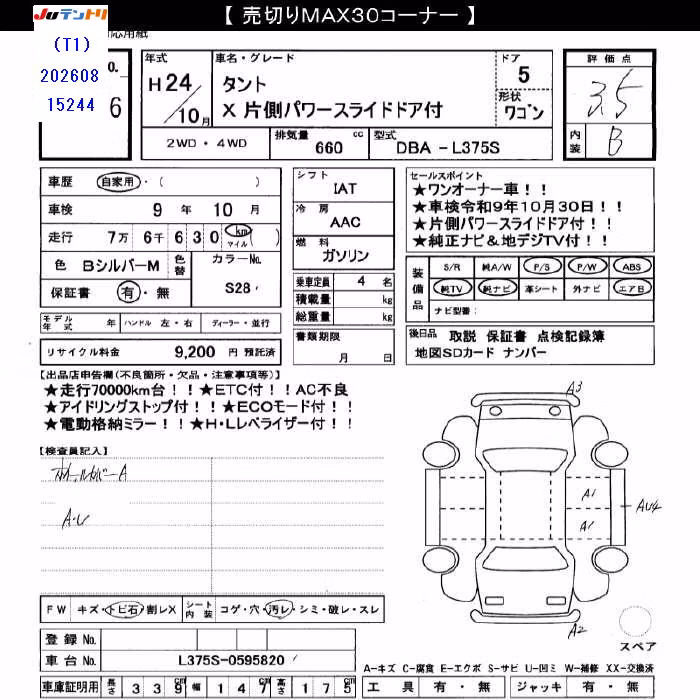 【 売切りMAX30コーナー 】
JUテントリ
応用紙
(T1)
202608
15244
o.
6
年式
H 24 / 10 月
車名・グレード
タント
X 片側パワースライドドア付
ドア
5
形状
ワゴン
評価点
3.5
内装
B
2WD・4WD
排気量 660 cc
型式 DBA - L375S
車歴 自家用・( )
車検 9 年 10 月
走行 7万 6千 6 3 0 km マイル ( )
色 BシルバーM
色替
カラーNo.
S28
保証書 有・無
モデル年式 年
ハンドル 左・右
ディーラー・並行
リサイクル料金 9,200 円 預託済
シフト
IAT
冷房
AAC
燃料
ガソリン
乗車定員 4 名
積載量 kg
総重量 kg
書類期限
月 日
セールスポイント
★ワンオーナー車!!
★車検令和9年10月30日!!
★片側パワースライドドア付!!
★純正ナビ&地デジTV付!!
装備品
S/R 純A/W P/S P/W ABS
純TV 純ナビ 革シート 外ナビ エアB
ナビ型番:
後日品 取説 保証書 点検記録簿
地図SDカード ナンバー
【出品店申告欄(不良箇所・欠品・注意事項等)】
★走行70000km台!!★ETC付!!AC不良
★アイドリングストップ付!!★ECOモード付!!
★電動格納ミラー!!★H・Lレベライザー付!!
【検査員記入】
ホイールカバーA
A・U
A3
A1
A1
AU4
A2
スペア
FW キズ・トビ石・割レX
シート内装 コゲ・穴・汚レ・シミ・破レ・スレ
登録No.
車台No. L375S-0595820
車庫証明用 長さ 3 3 9 cm 幅 1 4 7 cm 高さ 1 7 5 cm
A-キズ C-腐食 E-エクボ S-サビ U-凹ミ W-補修 XX-交換済
工具 有・無 ジャッキ 有・無